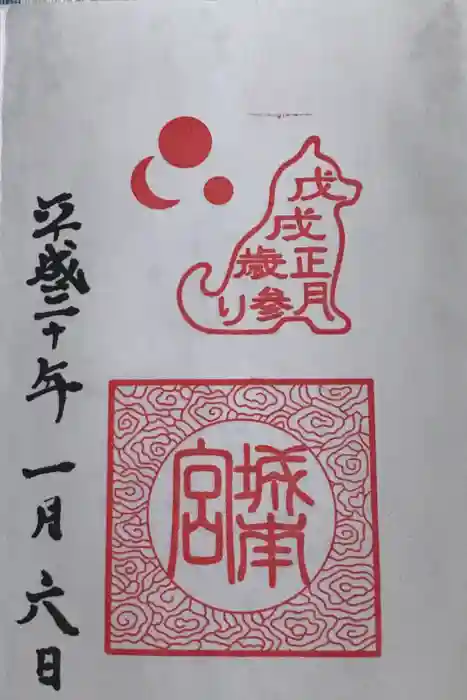 戊戌正月
歳参り
城南
宮
平成三十年一月六日